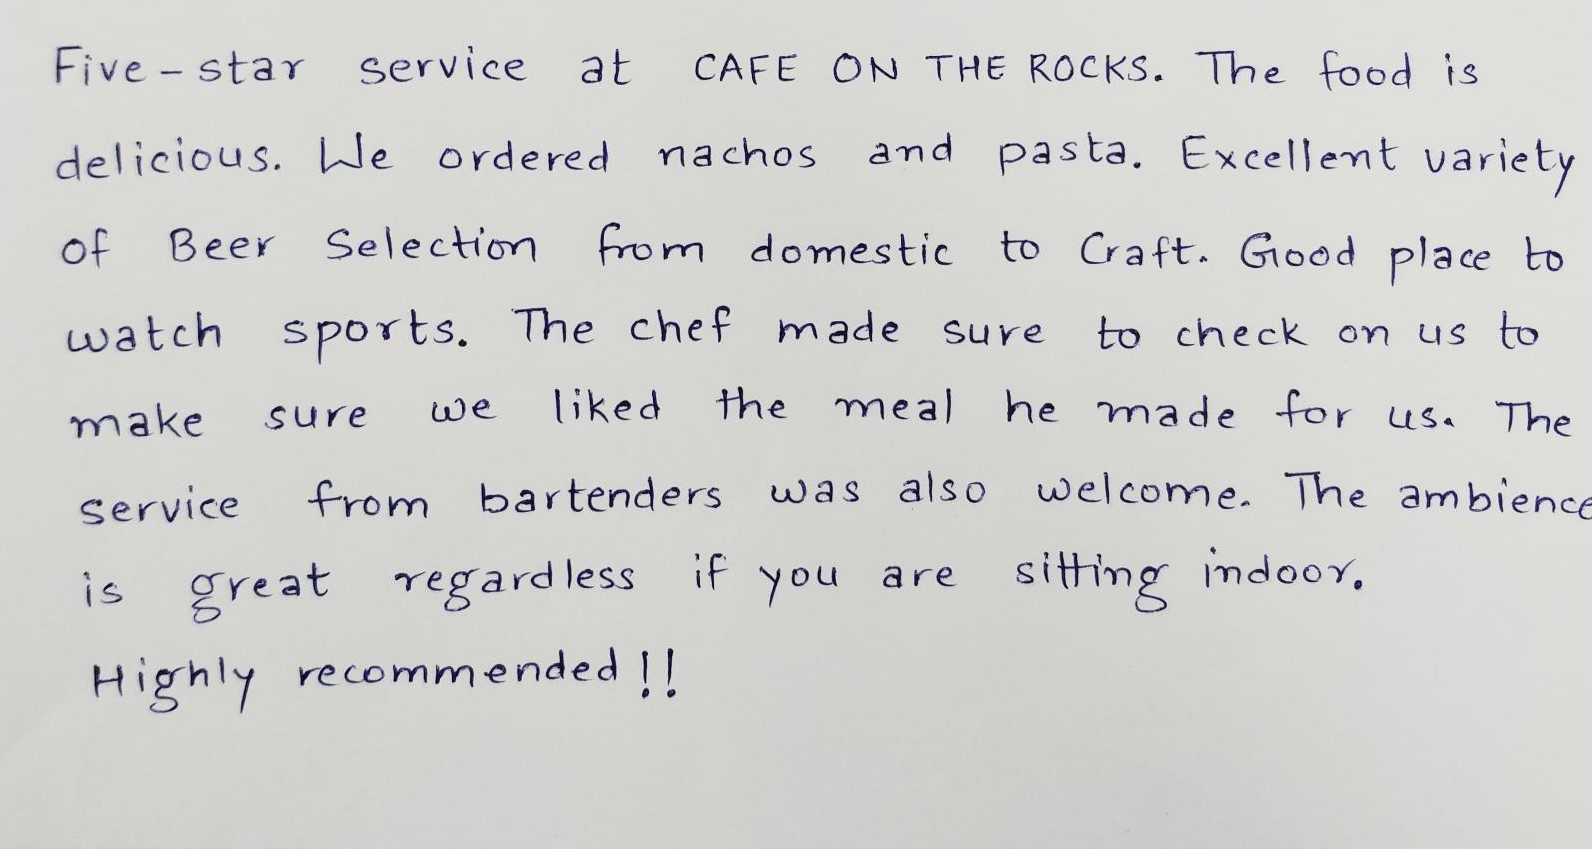 Five-star service at CAFE ON THE ROCKS. The food is
delicious. We ordered nachos and pasta. Excellent variety
of Beer Selection from domestic to Craft. Good place to
watch sports. The chef made sure to check on us to
make sure we liked the meal he made for us. The
service from bartenders was also welcome. The ambience
is great regardless if you are sitting indoor.
Highly recommended!!